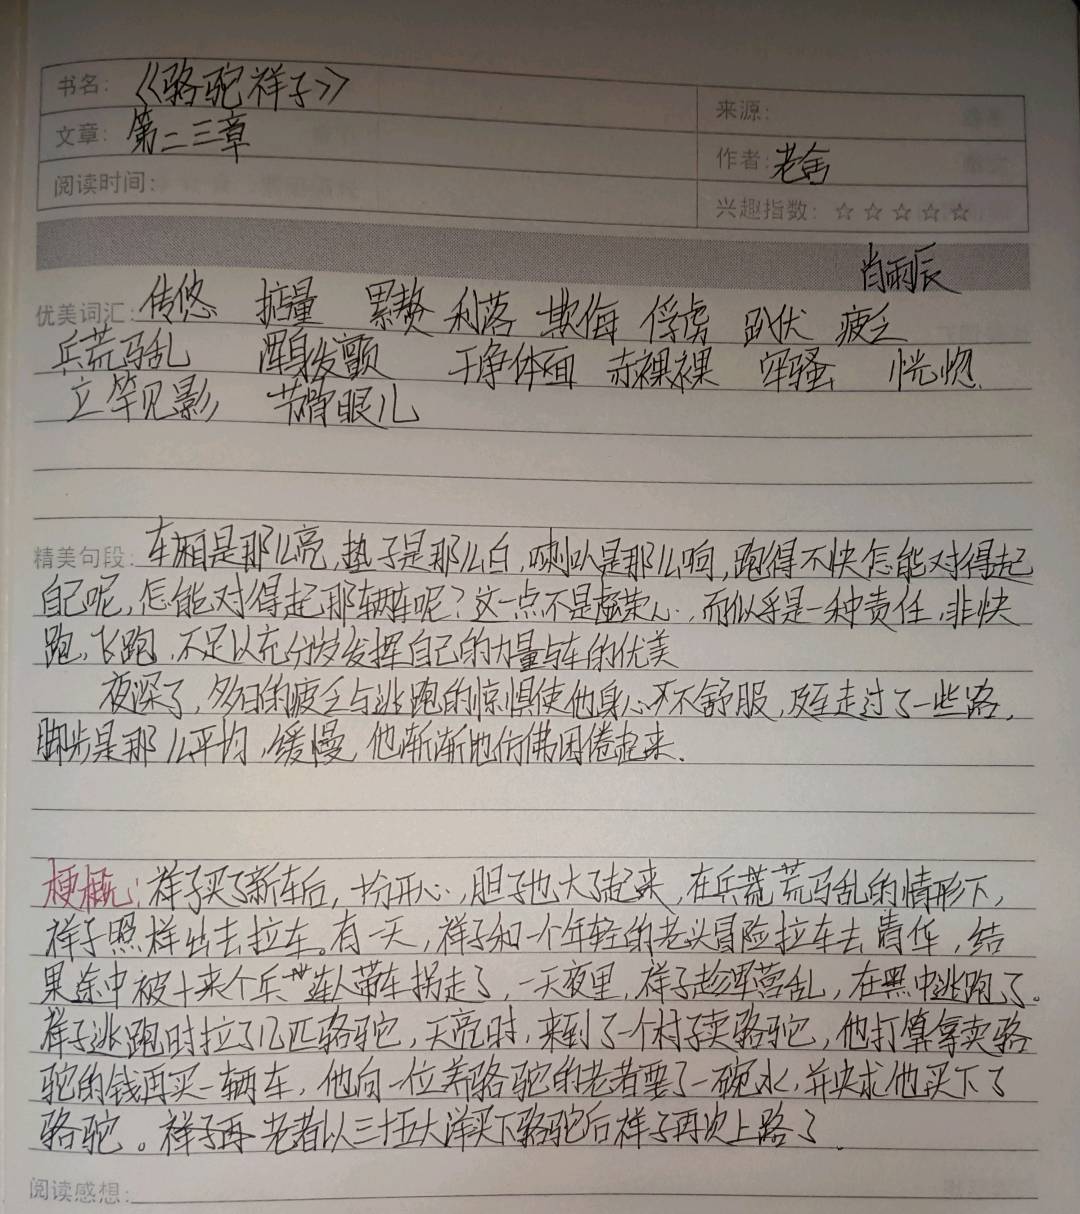 书名：《骆驼祥子》
来源：
文章：第二三章
作者：老舍
阅读时间：
兴趣指数：☆☆☆☆☆
肖雨辰
优美词汇：传悠 掂量 累赘 利落 欺侮 俘虏 趴伏 疲乏
兵荒马乱 浑身发颤 干净体面 赤裸裸 牢骚 恍惚
立竿见影 节骨眼儿
精美句段：车厢是那么亮，垫子是那么白，喇叭是那么响，跑得不快怎能对得起
自己呢，怎能对得起那辆车呢？这一点不是虚荣心，而似乎是一种责任，非快
跑，飞跑，不足以充分发挥自己的力量与车的优美
夜深了，多日的疲乏与逃跑的惊惧使他身心不舒服，及至走过了一些路，
脚步是那么平均，缓慢，他渐渐地仿佛困倦起来.
梗概：祥子买了新车后，十分开心，胆子也大了起来，在兵荒荒马乱的情形下，
祥子照样出去拉车。有一天，祥子和一个年轻的老头冒险拉车去清华，结
果途中被十来个兵连人带车拐走了，一天夜里，祥子趁军营乱，在黑中逃跑了。
祥子逃跑时拉了几匹骆驼，天亮时，来到了一个村子卖骆驼，他打算拿卖骆
驼的钱再买一辆车，他向一位养骆驼的老者要了一碗水，并央求他买下了
骆驼。祥子再老者以三十五大洋买下骆驼后祥子再次上路了.
阅读感想：